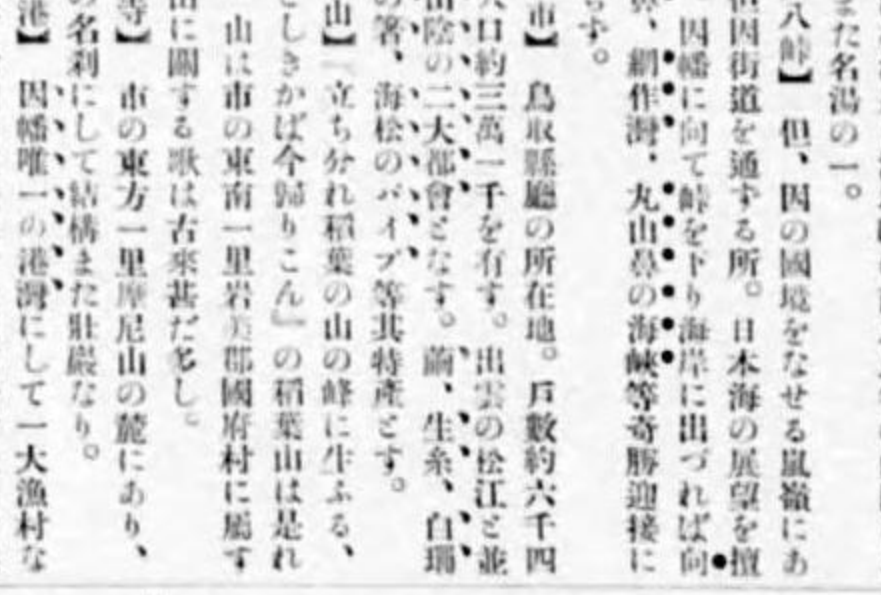 また名湯の一。
八峠】 但、因の國境をなせる嵐嶺にあ
但因街道を通ずる所。日本海の展望を擅
因幡に向て峠を下り海岸に出づれば向
網作灣、丸山鼻の海峽等奇勝迎接に
ず。
市】 鳥取縣廳の所在地。戸數約六千四
人口約三萬一千を有す。出雲の松江と並
山陰の二大都會となす。繭、生糸、白珊
の箸、海松のパイプ等其特産とす。
山】『立ち分れ稻葉の山の峰に生ふる、
としきかば今歸りこん』の稻葉山は是れ
山は市の東南一里岩美郡國府村に屬す
に關する歌は古來甚だ多し。
寺】 市の東方一里摩尼山の麓にあり、
の名刹にして結構また壯嚴なり。
港】 因幡唯一の港灣にして一大漁村な